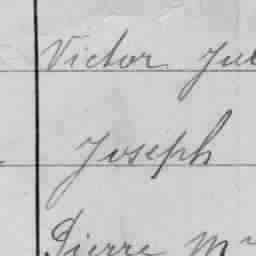 Victor Jul
Joseph
Pierre Mr